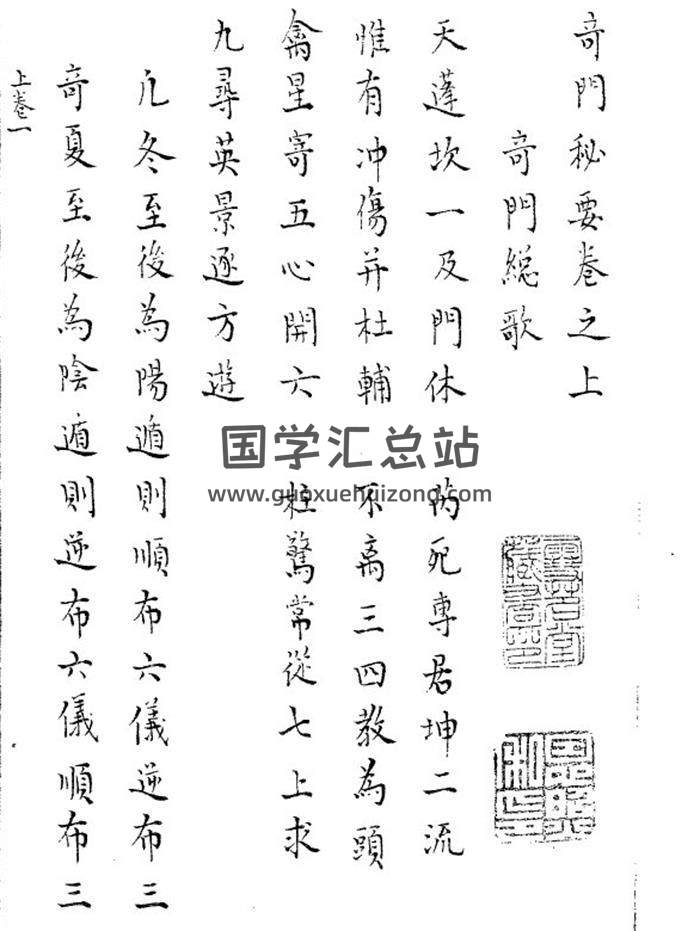 奇門秘要卷之上
奇門総歌
天蓬坎一及門休 芮死專居坤二流
惟有冲傷并杜輔 不离三四教為頭
禽星寄五心開六 柱驚常從七上求
九尋英景逐方遊
凢冬至後為陽遁則順布六儀逆布三
奇夏至後為陰遁則逆布六儀順布三
上卷一
国学汇总站
www.guoxuehuizong.com